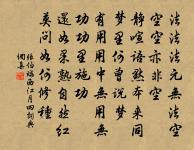 法法法元無法空
空空亦非空
靜喧語默本來同
夢里何曾說夢
有用用中無用無
功功里施功
還如果熟自然紅
莫問如何修種
張伯端西江月四詞典
網集